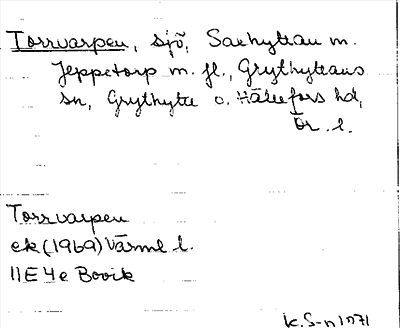 Torrvarpen, sjö, Saxhyttan m.
Jeppetorp m. fl., Grythytteans
sn, Grythytte o. Hällefors hd,
Ör. l.
Torrvarpen
ek (1969) Värml l.
11E4e Bovik
K. S-n 1971